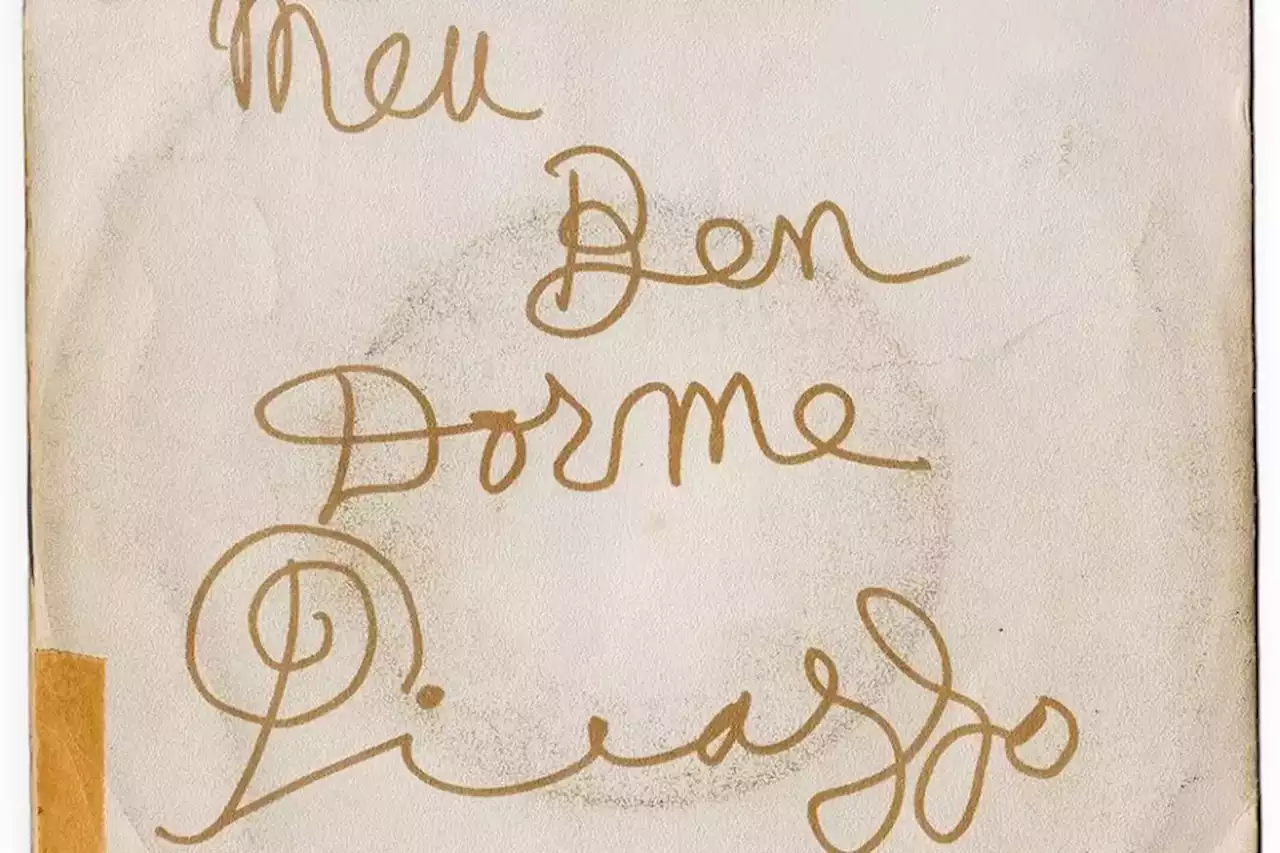 Meu
Ben
Dorme
Picasso